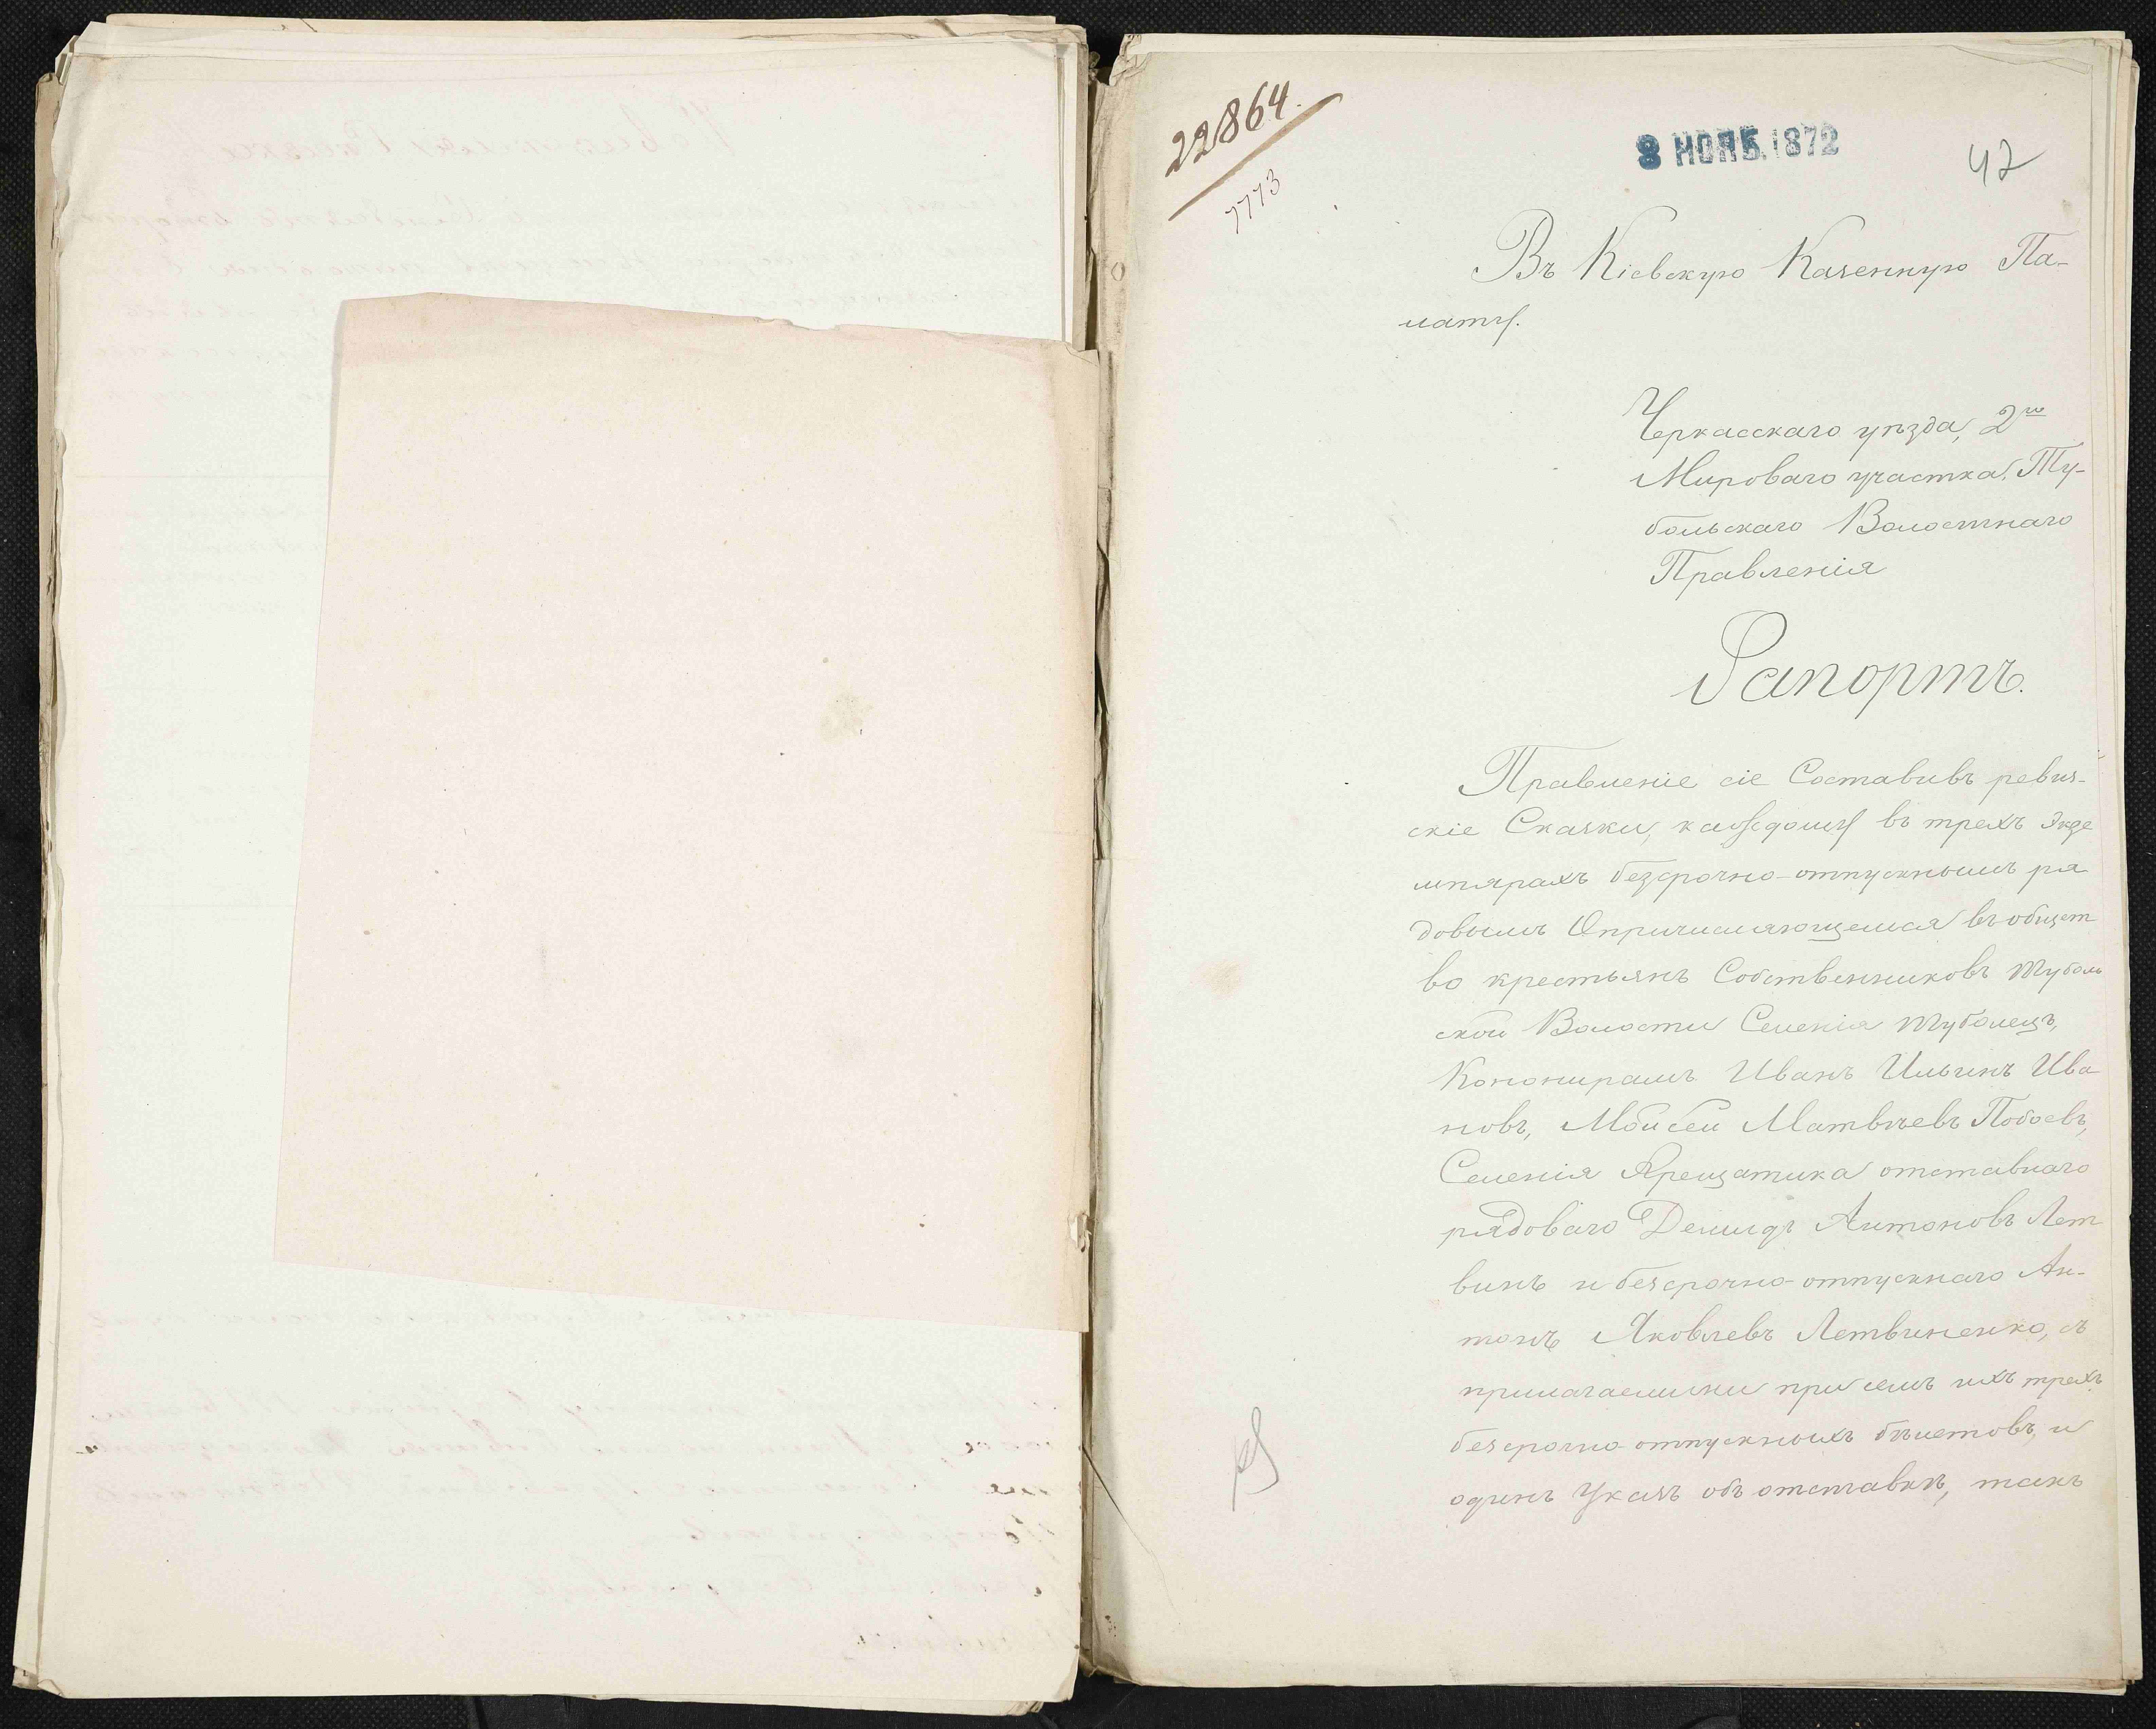 22864.
7773
8 НОЯБ. 1872
42
Въ Кіевскую Казенную Па-
лату.
Черкасскаго уѣзда, 2го
Мироваго участка, Ту-
больскаго Волостнаго
Правленія
Рапортъ.
Правленіе сіе Составивъ ревиз-
скіе Сказки, каждому въ трехъ Экзе
мплярахъ безсрочно-отпускнымъ ря
довымъ Опричисляющемся въ общест
во крестьянъ Собственниковъ Туболь
ской Волости Селенія Туболецъ,
Кононирамъ Иванъ Ильинъ Ива
новъ, Мойсей Матвѣевъ Побоевъ,
Селенія Крещатика отставнаго
рядоваго Демидъ Антоновъ Лет
винъ и безсрочно-отпускнаго Ан-
тонъ Яковлевъ Летвиненко, съ
прилагаемыми при семъ ихъ трехъ
безсрочно-отпускныхъ билетовъ, и
одинъ Указъ объ отставкѣ, такъ